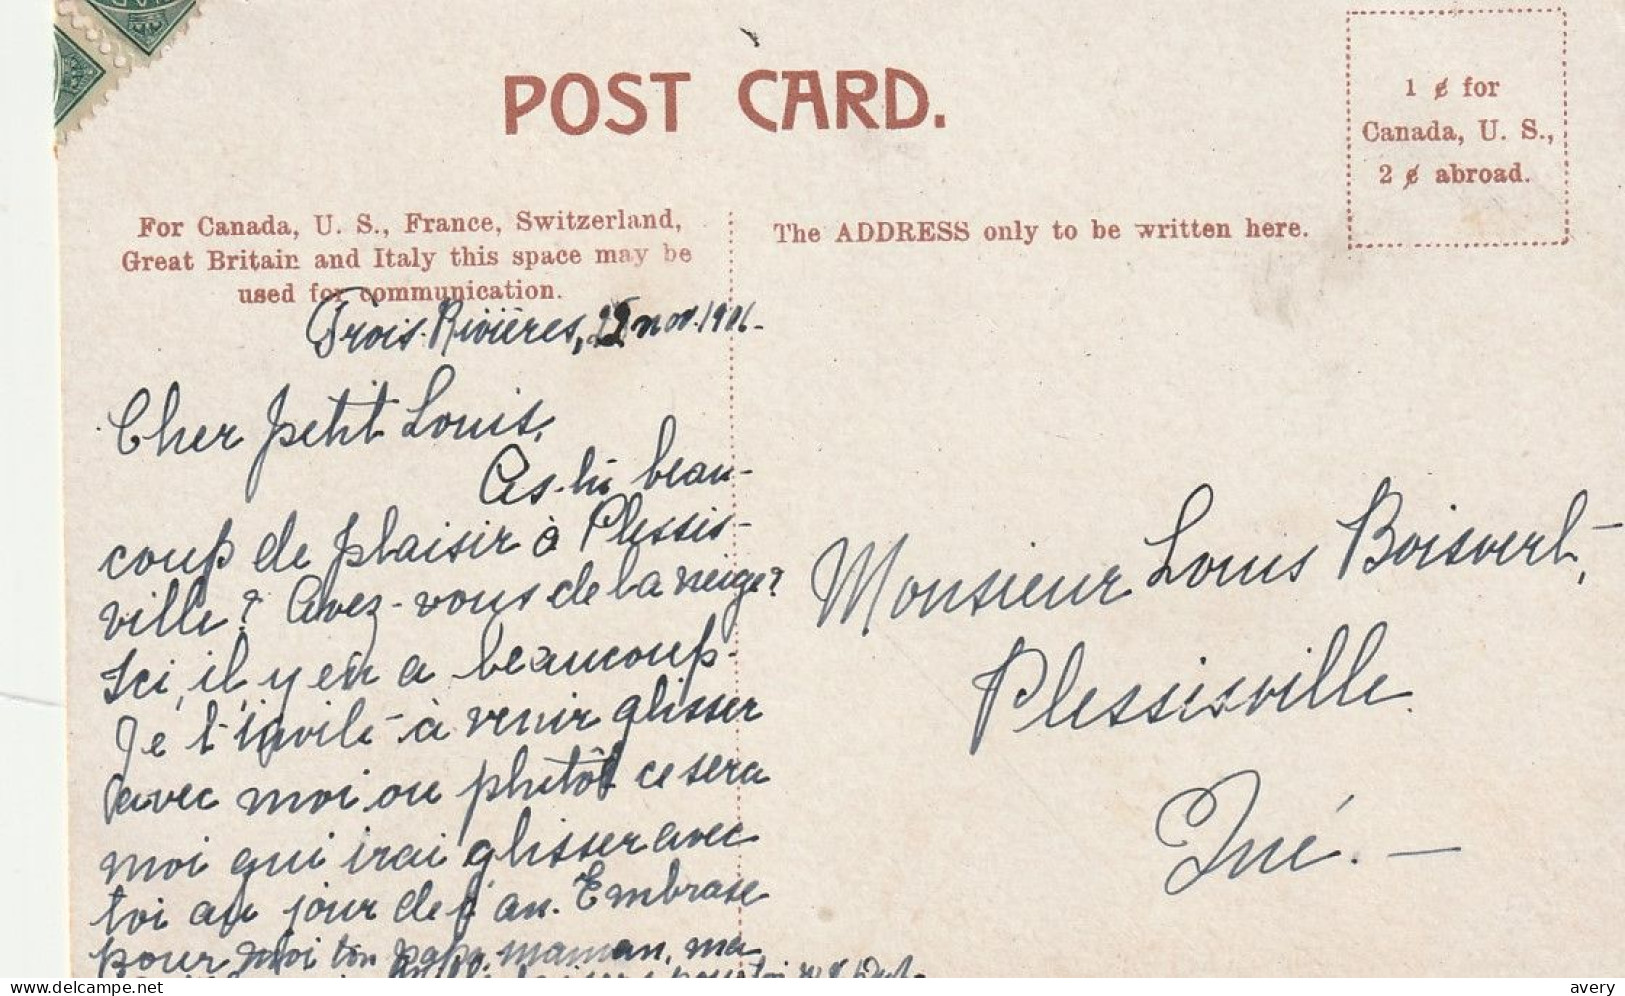 POST CARD.
1 ¢ for
Canada, U. S.,
2 ¢ abroad.
For Canada, U. S., France, Switzerland,
Great Britain and Italy this space may be
used for communication.
The ADDRESS only to be written here.
Trois-Rivières, nov. 1906-
Cher petit Louis,
As-tu beau-
coup de plaisir à Plessis-
ville? Avez-vous de la neige?
Ici, il y en a beaucoup-
Je t'invite à venir glisser
avec moi ou plutôt ce sera
moi qui irai glisser avec
toi au jour de l'an. Embrasse
pour moi ton papa, maman, ma
pour toi
Monsieur Louis Boisvert,
Plessisville
Qué. —
delcampe.net
avery